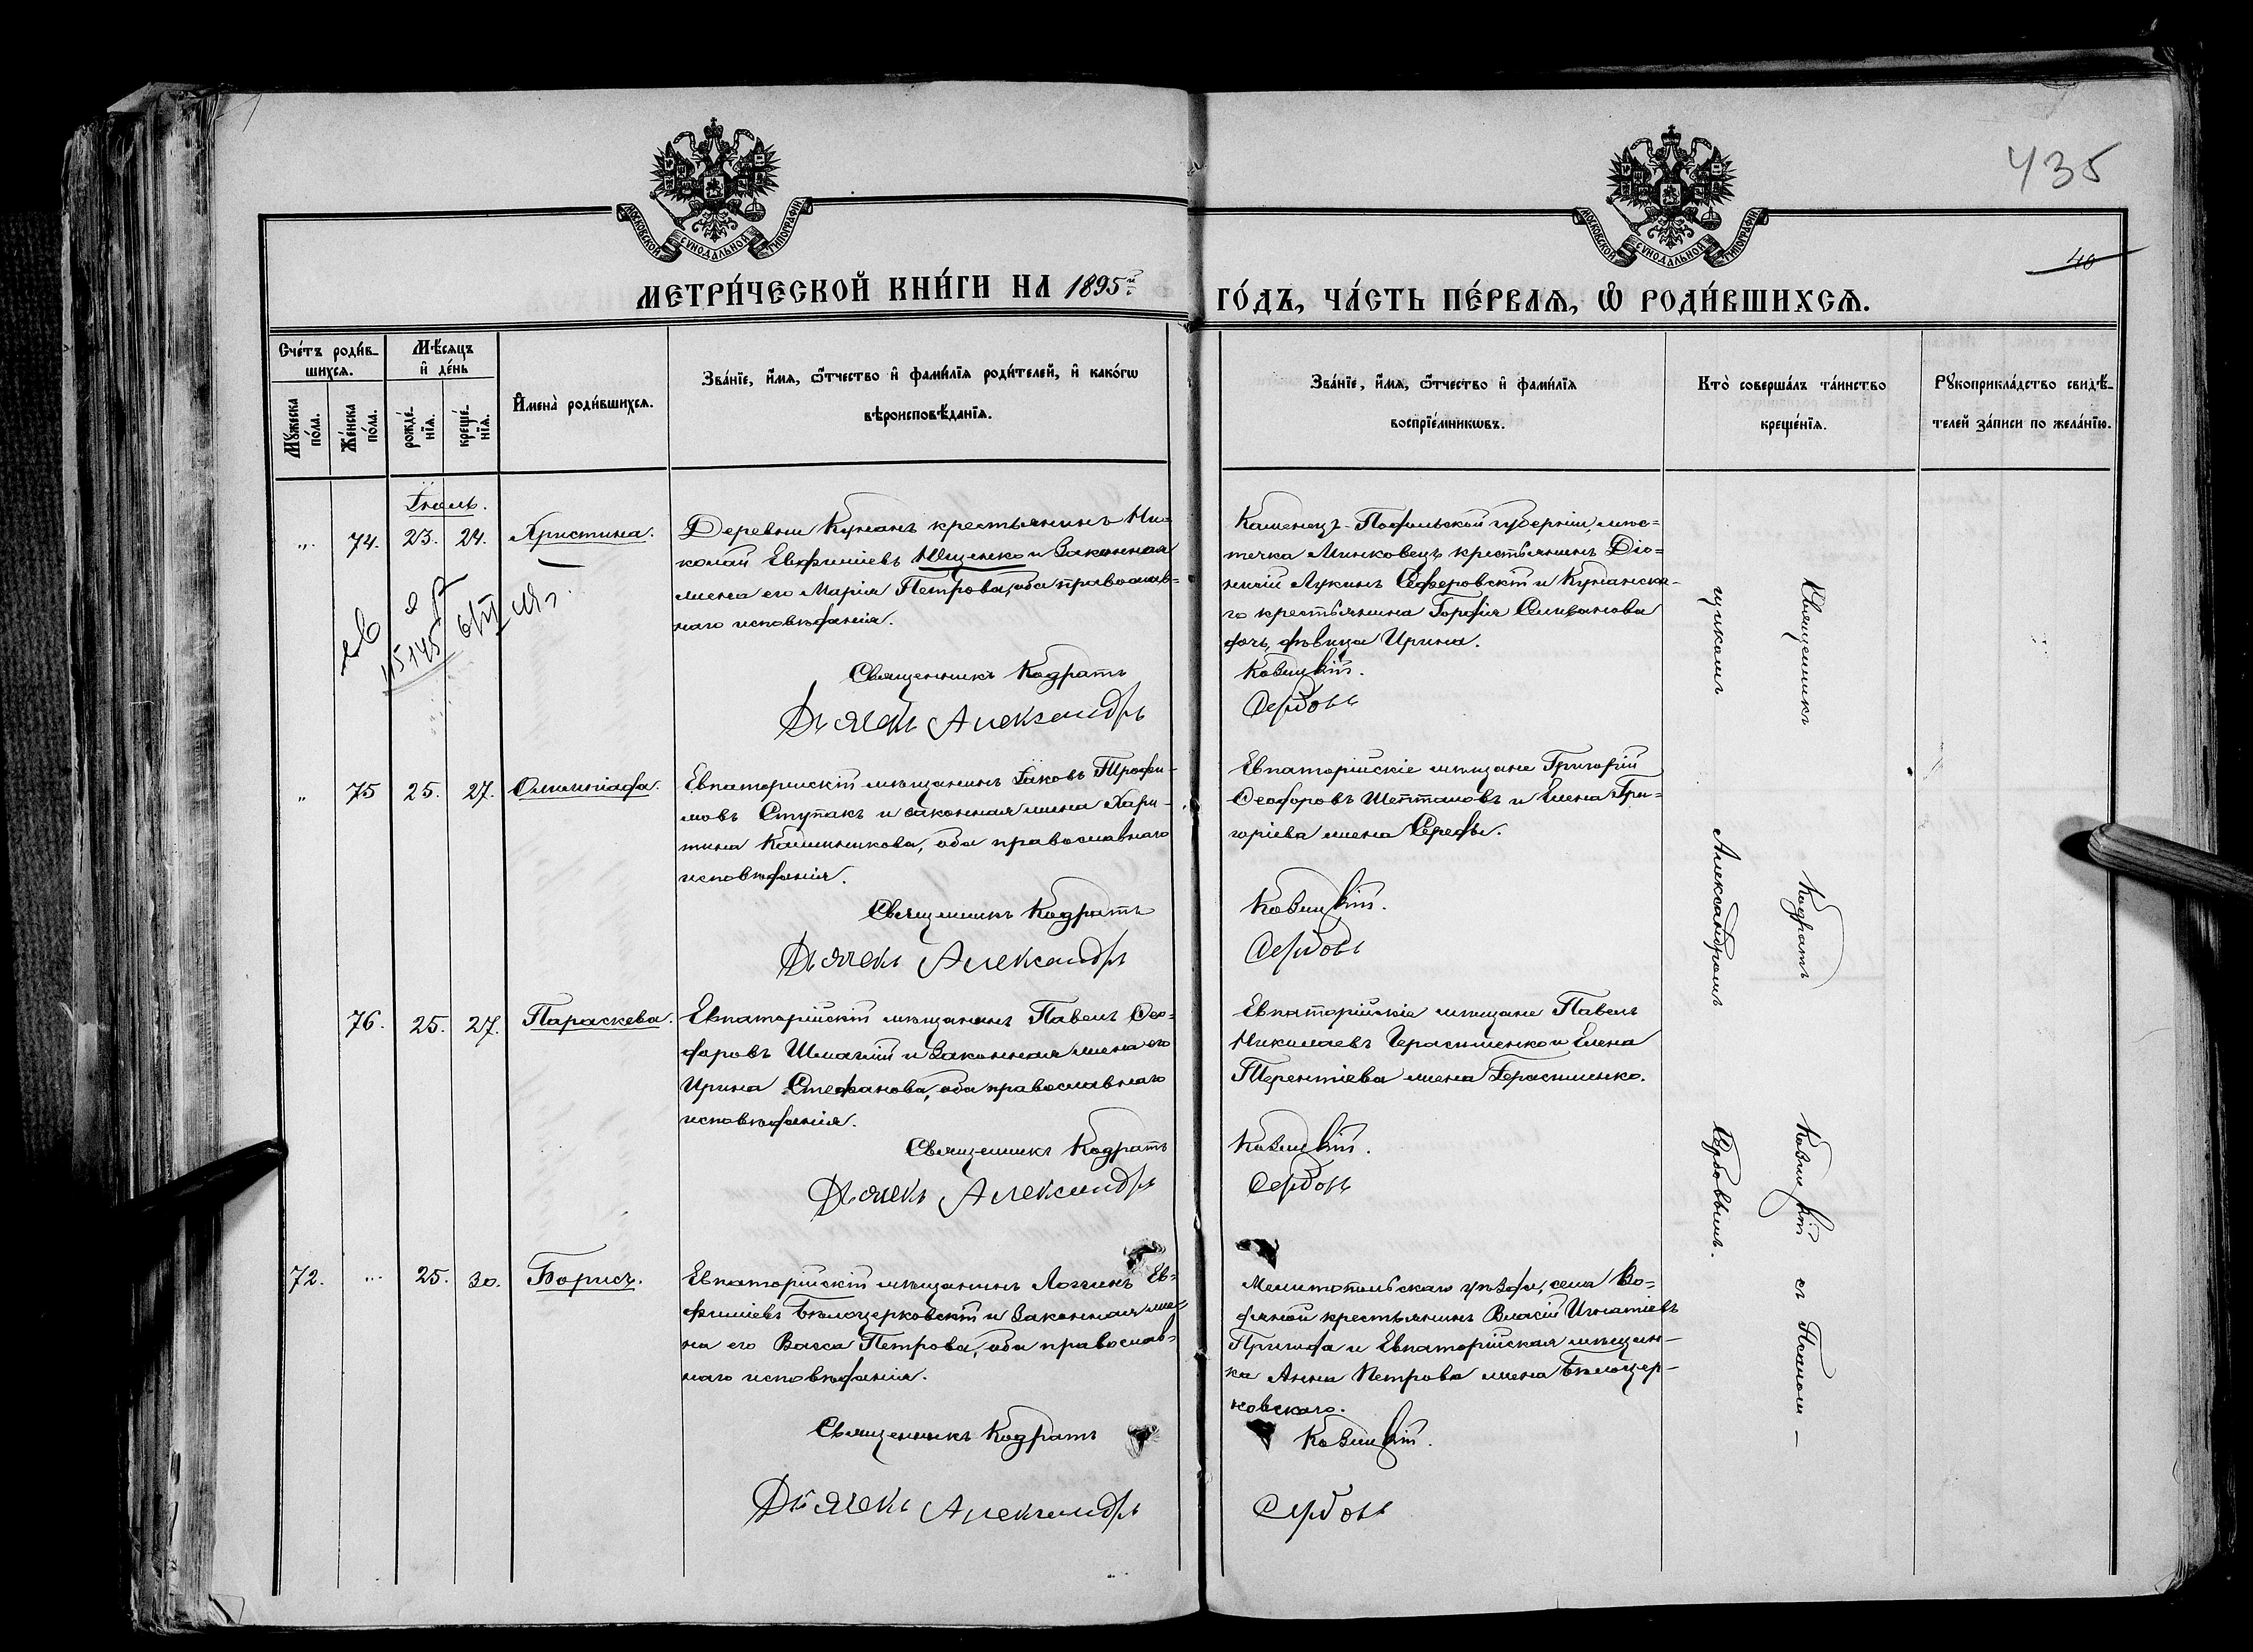 435
40
МОСКОВСКОЙ СУНОДАЛЬНОЙ ТИПОГРАФІИ
МОСКОВСКОЙ СУНОДАЛЬНОЙ ТИПОГРАФІИ
МЕТРИ́ЧЕСКОЙ КНИ́ГИ НА 1895й
ГО́ДЪ, ЧА́СТЬ ПЕ́РВАѦ, Ѡ РОДИ́ВШИХСѦ.
Сче́тъ роди́в-
шихсѧ.
Мꙋ́жска
по́ла.
Же́нска
по́ла.
Мѣ́сѧцъ
и҆ де́нь
рожде́-
нїѧ.
креще́-
нїѧ.
И҆мена̀ роди́вшихсѧ.
Зва́нїе, и҆́мѧ, ѻ҆́тчество и҆ фами́лїѧ роди́телей, и҆ како́гѡ
вѣроисповѣ́данїѧ.
Зва́нїе, и҆́мѧ, ѻ҆́тчество и҆ фами́лїѧ
воспрїе́мникѡвъ.
Кто̀ соверша́лъ та́инство
креще́нїѧ.
Рꙋкоприкла́дство свидѣ́-
телей за́писи по жела́нїю.
Іюль.
„ 74. 23. 24. Христина.
Деревни Кунанъ крестьянинъ Ни-
колай Евфиміевъ Ищенко и законная
жена его Марія Петрова, оба православ-
наго исповѣданія.
Священникъ Кодратъ
Дьячекъ Александръ
Каменецъ-Подольской губерніи, мѣс-
течка Минковецъ крестьянинъ Діо-
нисій Лукинъ Сеферовскій и Кунанска-
го крестьянина Гордія Селиванова
дочь, дѣвица Ирина.
Ковицкій.
Сербовъ
115 145
„ 75 25. 27. Олимпіада.
Евпаторійскій мѣщанинъ Іаковъ Трофи-
мовъ Ступакъ и законная жена Хари-
тина Калинникова, оба православнаго
исповѣданія.
Священникъ Кодратъ
Дьячекъ Александръ
Евпаторійскіе мѣщане Григорій
Ѳеодоровъ Шепталовъ и Елена Гри-
горіева жена Середы.
Ковицкій.
Сербовъ
76. 25. 27. Параскева.
Евпаторійскій мѣщанинъ Павелъ Ѳео-
доровъ Шмаглій и законная жена его
Ирина Стефанова, оба православнаго
исповѣданія.
Священникъ Кодратъ
Дьячекъ Александръ
Евпаторійскіе мѣщане Павелъ
Николаевъ Герасименко и Елена
Терентіева жена Герасименко.
Ковицкій.
Сербовъ
72. „ 25. 30. Борисъ.
Евпаторійскій мѣщанинъ Логгинъ Ев-
фиміевъ Бѣлоцерковскій и законная же-
на его Васса Петрова, оба православ-
наго исповѣданія.
Священникъ Кодратъ
Дьячекъ Александръ
Мелитопольскаго уѣзда, села Во-
дяной крестьянинъ Власій Игнатіевъ
и Евпаторійская мѣщан-
ка Анна Петрова жена Бѣлоцер-
ковскаго.
Ковицкій.
Сербовъ
Священникъ Кодратъ Ковицкій съ Псалом-
щикомъ Александромъ Сербовымъ.